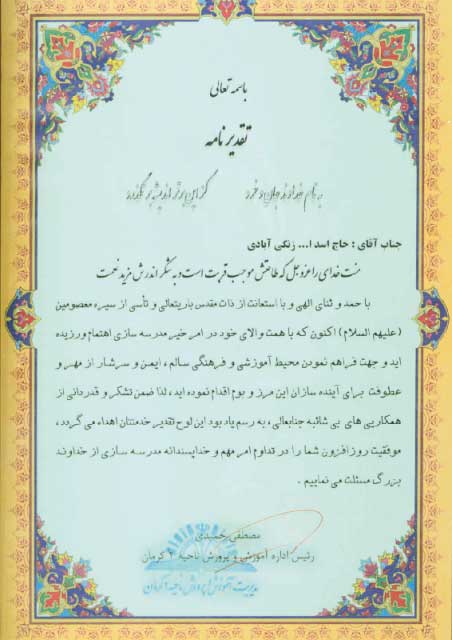 باسمه تعالی
تقدیر نامه
به نام خداوند جان و خرد کزین برتر اندیشه برنگذرد
جناب آقای : حاج اسد ا... زنگی آبادی
منت خدای را عزوجل که طاعتش موجب قربت است و به شکر اندرش مزید نعمت
با حمد و ثنای الهی و با استعانت از ذات مقدس باریتعالی و تأسی از سیره معصومین
(علیهم السلام) اکنون که با همت والای خود در امر خیر مدرسه سازی اهتمام ورزیده
اید و جهت فراهم نمودن محیط آموزشی و فرهنگی سالم ، ایمن و سرشار از مهر و
عطوفت برای آینده سازان این مرز و بوم اقدام نموده اید ، لذا ضمن تشکر و قدردانی از
همکاریی های بی شائبه جنابعالی ، به رسم یاد بود این لوح تقدیر خدمتتان اهداء می گردد ،
موفقیت روز افزون شما را در تداوم امر مهم و خداپسندانه مدرسه سازی از خداوند
بزرگ مسئلت می نماییم .
مصطفی جمیدی
رئیس اداره آموزش و پرورش ناحیه ۲ کرمان
مدیریت آموزش و پرورش ناحیه ۲ کرمان